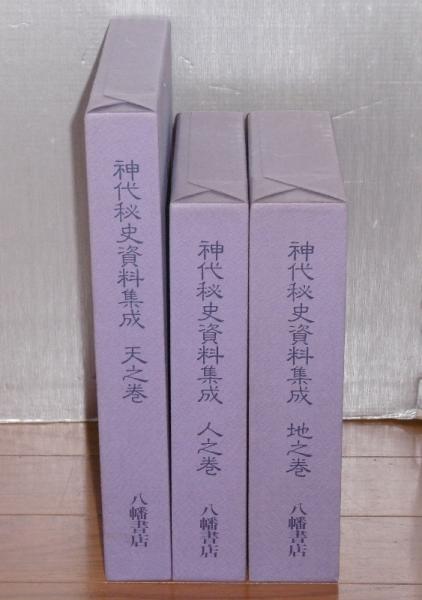 神代秘史資料集成 天之巻
八幡書店
神代秘史資料集成 人之巻
八幡書店
神代秘史資料集成 地之巻
八幡書店